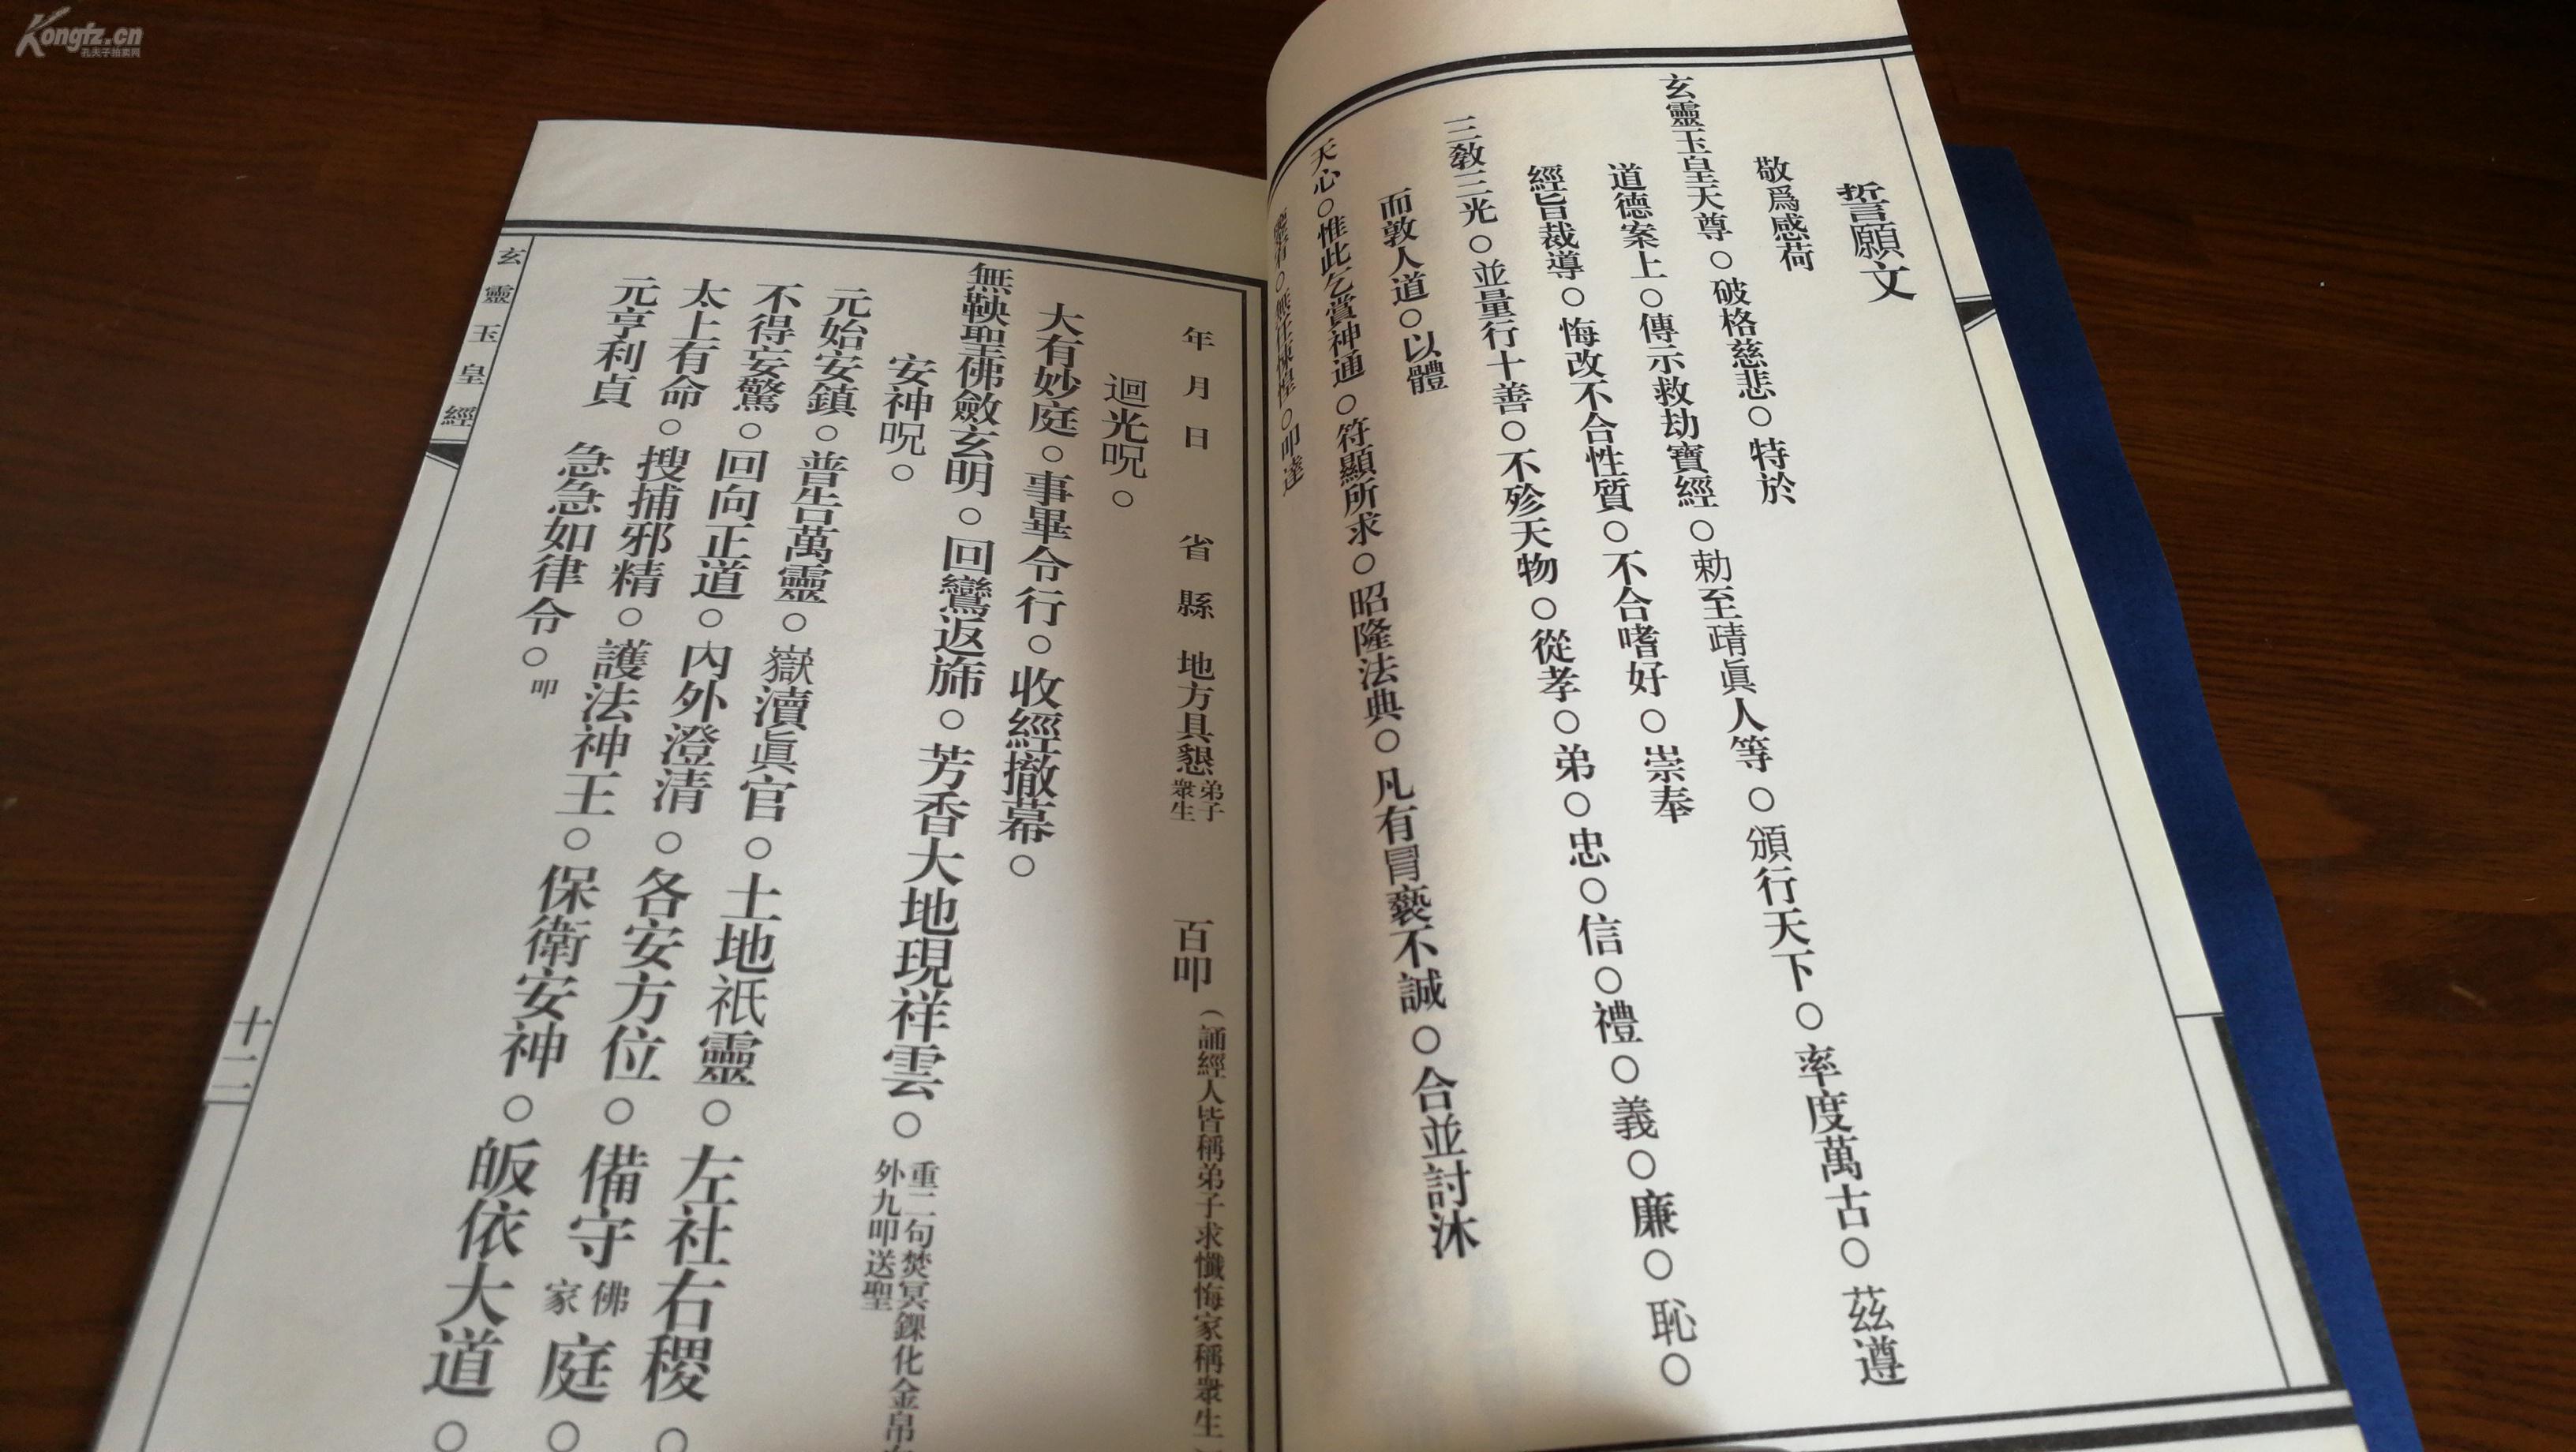 Kongfz.cn
孔夫子拍卖网
誓願文
敬爲感荷
玄靈玉皇天尊○破格慈悲○特於
道德案上○傳示救劫寶經○勅至靕眞人等○頒行天下○率度萬古○茲遵
經旨裁導○悔改不合性質○不合嗜好○崇奉
三教三光○並量行十善○不殄天物○從孝○弟○忠○信○禮○義○廉○恥○
而敦人道○以體
天心○惟此乞賞神通○符顯所求○昭隆法典○凡有冒褻不誠○合並討沐
○叩達
年月日 省縣 地方具懇 弟子 衆生 百叩 (誦經人皆稱弟子求懺悔家稱衆生
迴光呪○
大有妙庭○事畢令行○收經撤幕○
無鞅聖佛斂玄明○回鸞返斾○芳香大地現祥雲○ 重二句焚冥錁化金帛 外九叩送聖
安神呪○
元始安鎮○普告萬靈○嶽瀆眞官○土地祇靈○左社右稷○
不得妄驚○回向正道○內外澄清○各安方位○備守 佛 家 庭○
太上有命○搜捕邪精○護法神王○保衛安神○皈依大道○
元亨利貞 急急如律令○叩
玄靈玉皇經
十二